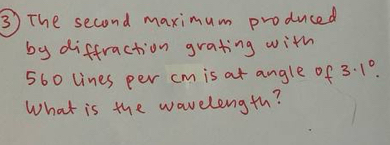 3) The second maximum produced
by diffraction grating with
560 lines per cm is at angle of 3.1°.
What is the wavelength?